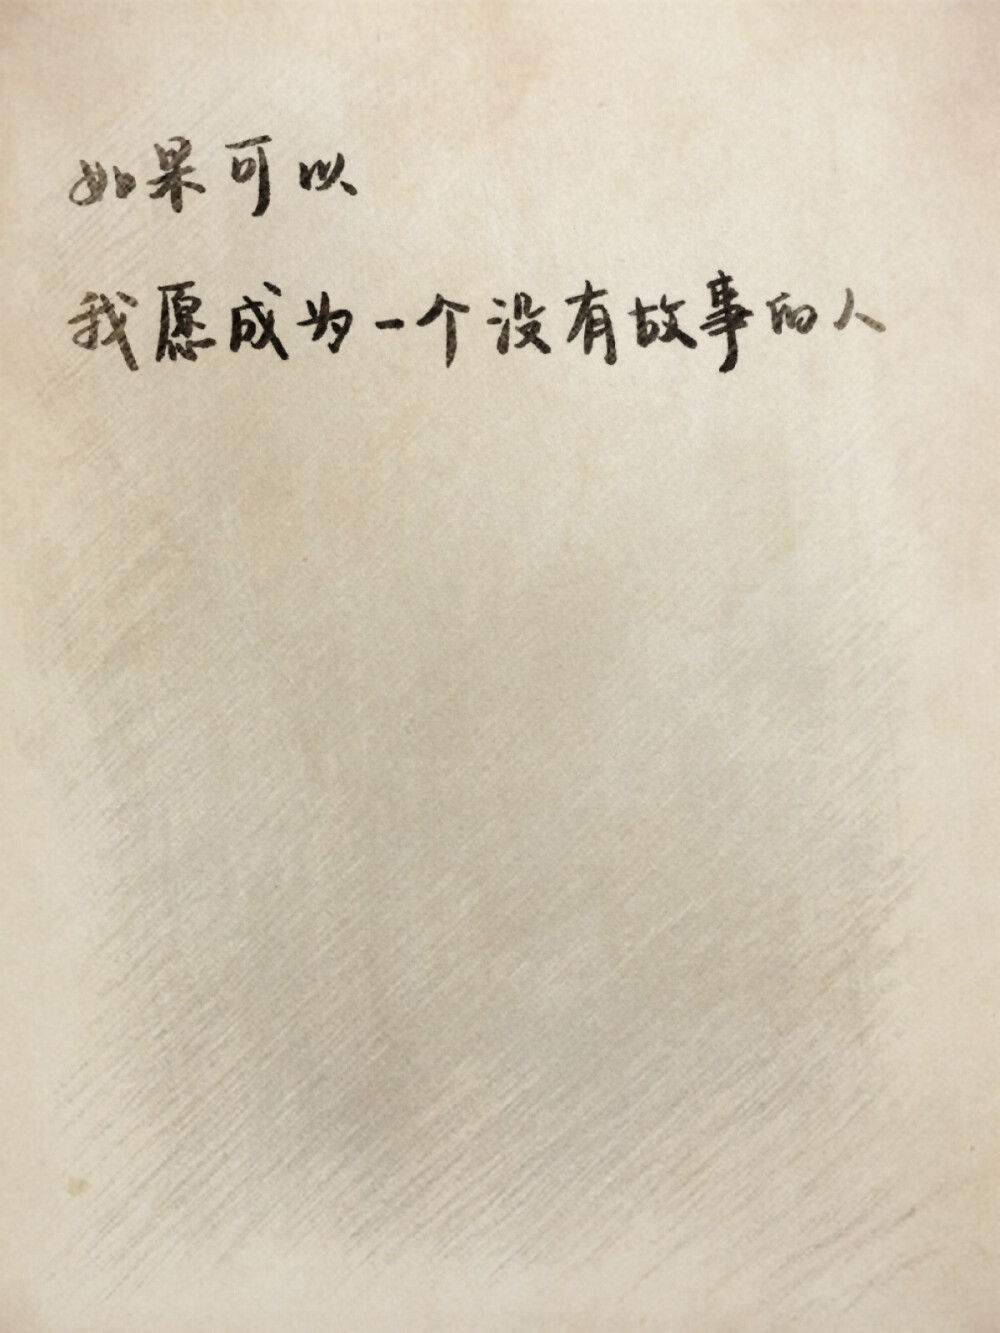 如果可以
我愿成为一个没有故事的人